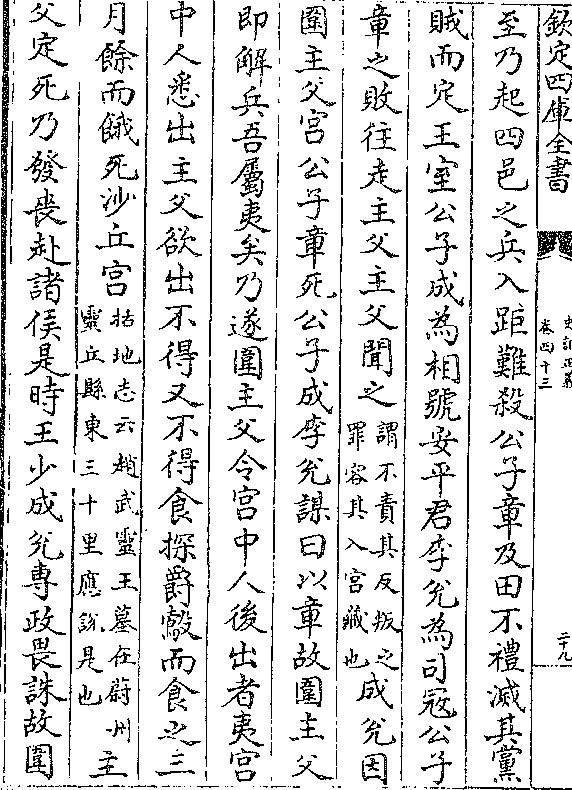 欽定四庫全書
史記正義
卷四十三
二十九
至乃起四邑之兵入距難殺公子章及田不禮滅其黨
賊而定王室公子成為相號安平君李兌為司寇公子
章之敗往走主父主父聞之謂不責其反叛之罪容其入宮藏也成兌因
圍主父宮公子章死公子成李兌謀曰以章故圍主父
即解兵吾屬夷矣乃遂圍主父令宮中人後出者夷宮
中人悉出主父欲出不得又不得食探爵鷇而食之三
月餘而餓死沙丘宮括地志云趙武靈王墓在蔚州靈丘縣東三十里應說是也主
父定死乃發喪赴諸侯是時王少成兌專政畏誅故圍